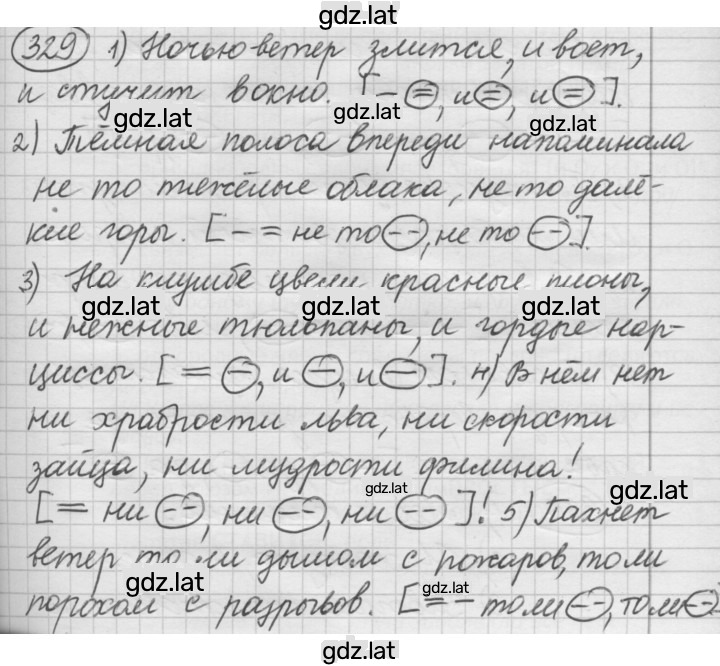 gdz.lat
329 1) Ночью ветер злится, и воет,
и стучит в окно. [– =, и =, и =].
gdz.lat gdz.lat gdz.lat
2) Тёмная полоса впереди напоминала
не то тяжёлые облака, не то далё-
кие горы. [– = не то – –, не то – –].
3) На клумбе цвели красные пионы,
gdz.lat gdz.lat gdz.lat
и нежные тюльпаны, и гордые нар-
циссы. [= –, и –, и –]. 4) В нём нет
ни храбрости льва, ни скорости
зайца, ни мудрости филина!
gdz.lat gdz.lat
[= ни – –, ни – –, ни – –]! 5) Пахнет
ветер то ли дымом с пожаров, то ли
gdz.lat gdz.lat
порохом с разрывов. [= – то ли – –, то ли – –].
gdz.lat